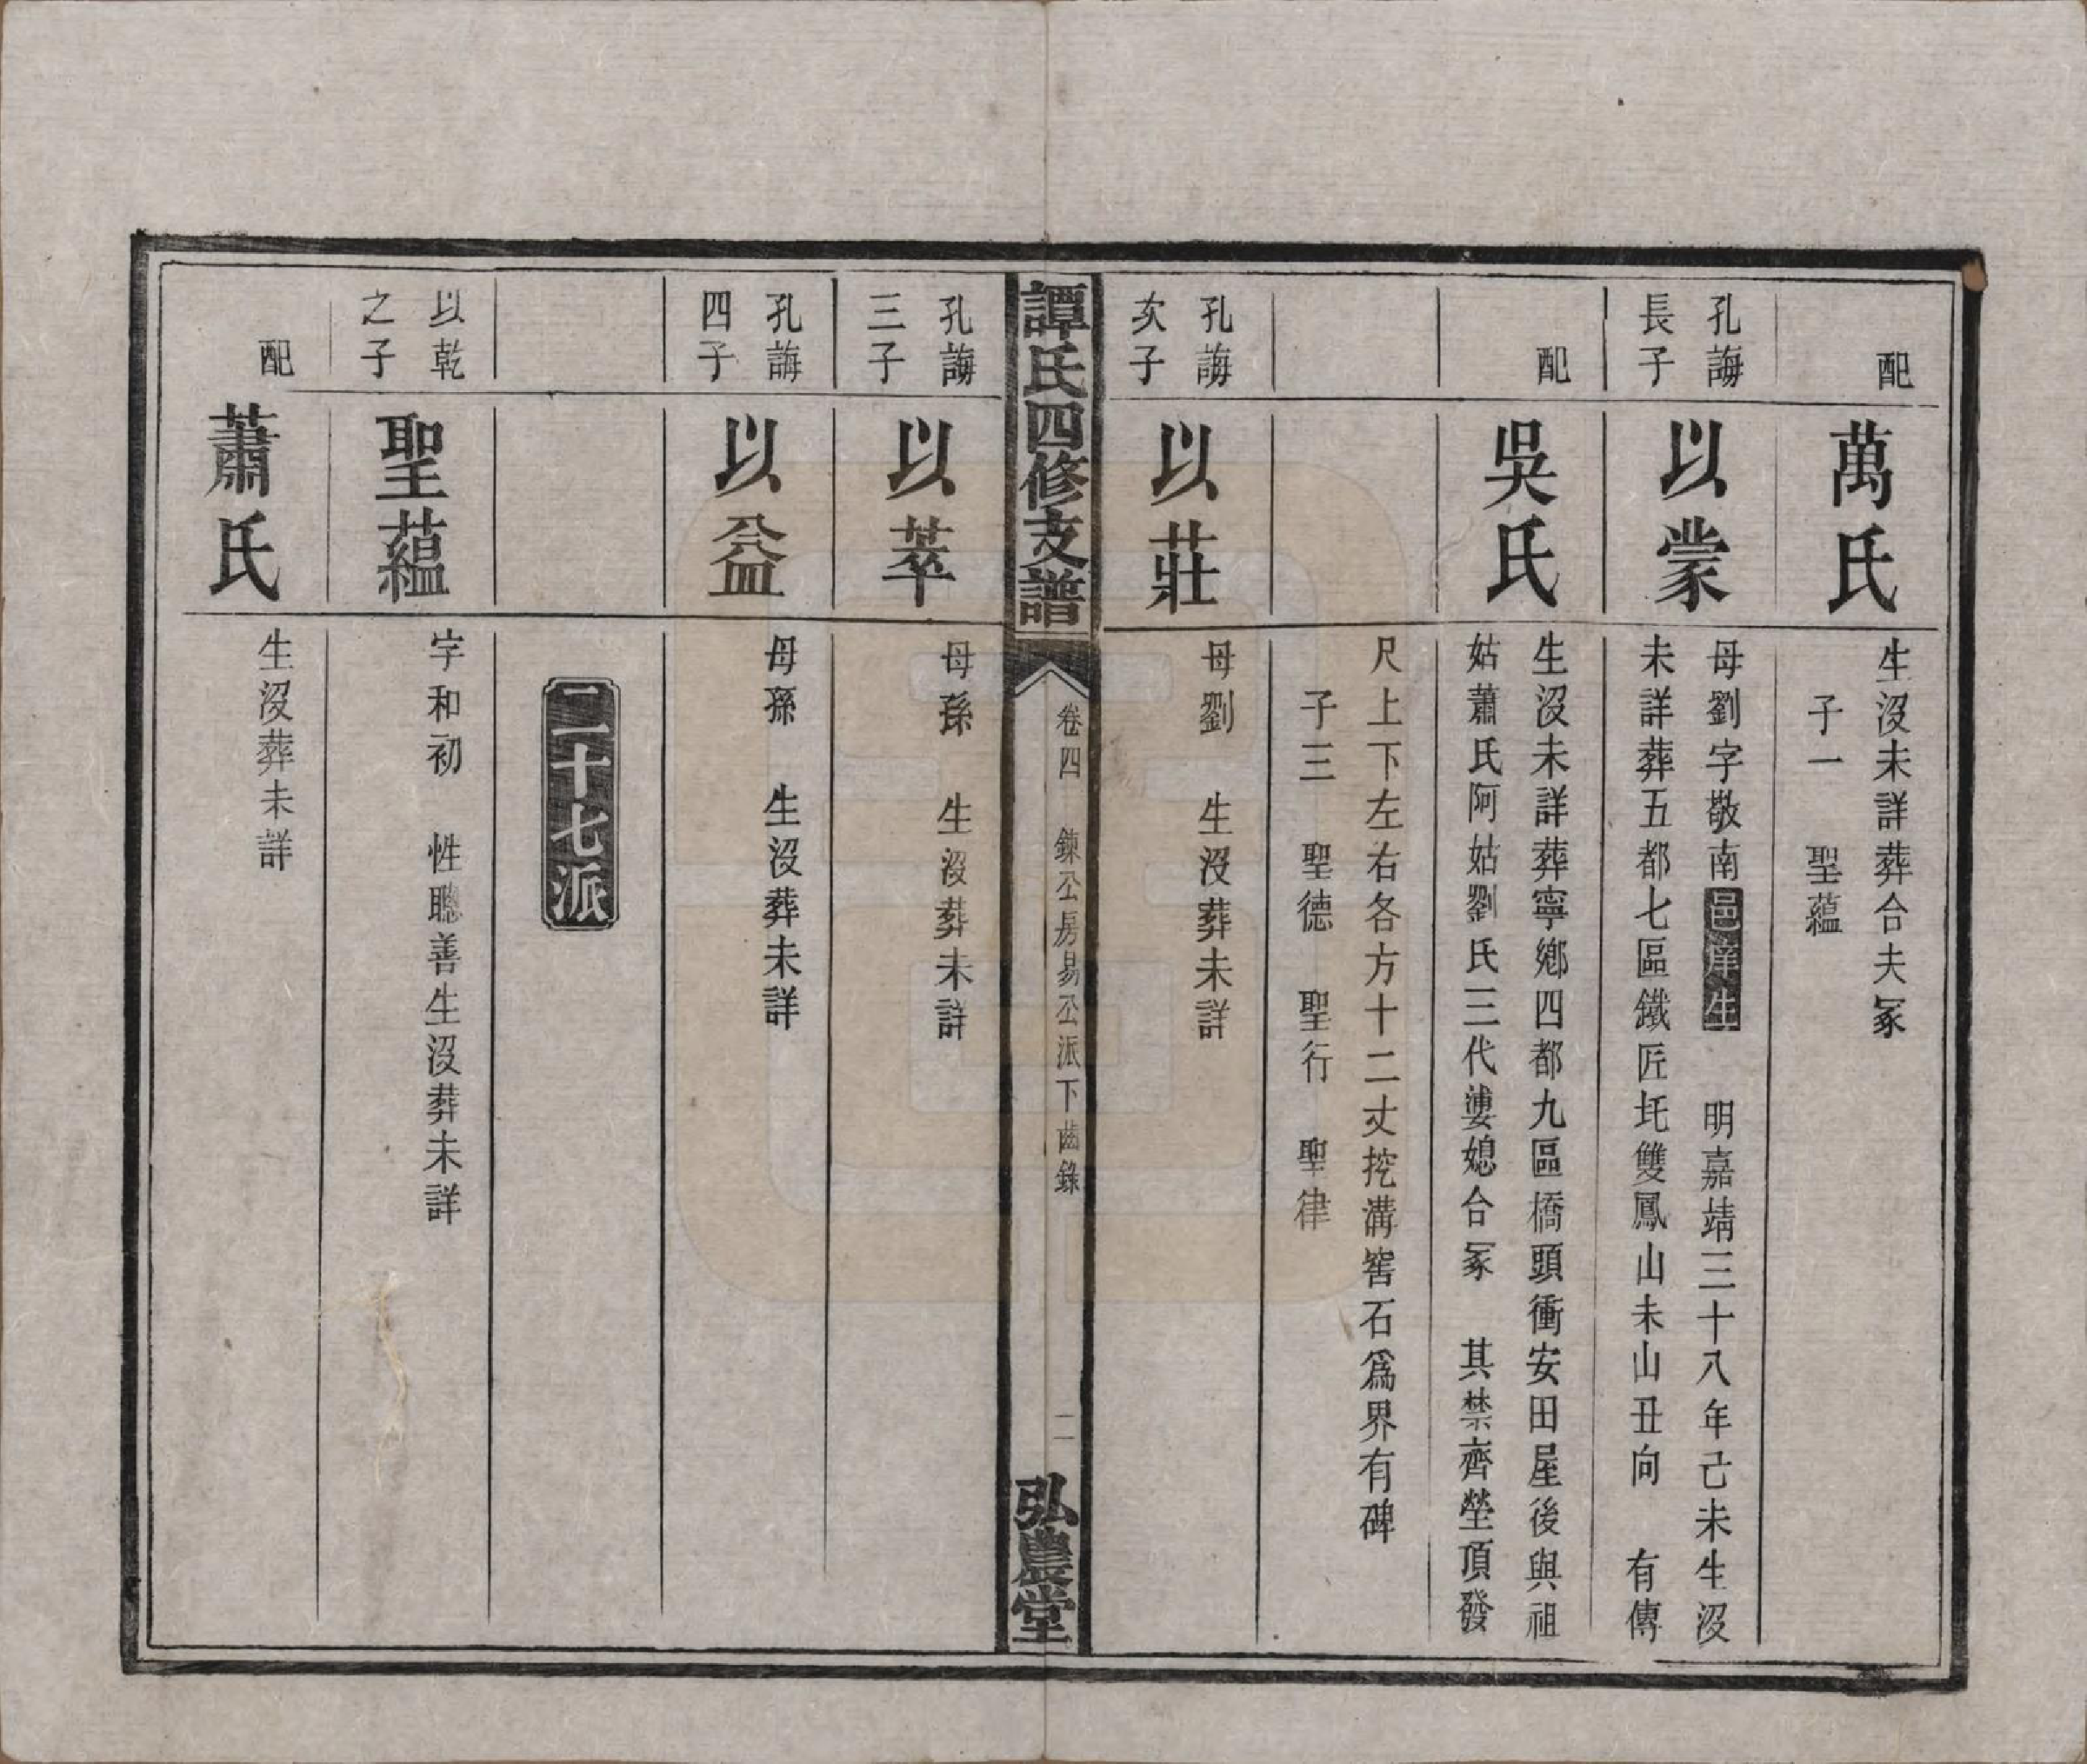 配
萬氏
生沒未詳葬合夫冢
子一　聖蘊
孔誨
長子
以蒙
母劉字敬南邑庠生　明嘉靖三十八年己未生沒
未詳葬五都七區鐵匠圫雙鳳山未山丑向　有傳
配
吳氏
生沒未詳葬寧鄉四都九區橋頭衝安田屋後與祖
姑蕭氏阿姑劉氏三代婆媳合冢　其禁齊塋頂發
尺上下左右各方十二丈挖溝窖石爲界有碑
子三　聖德　聖行　聖律
孔誨
次子
以莊
母劉　生沒葬未詳
譚氏四修支譜
卷四　鍊公房易公派下齒錄
二
弘農堂
孔誨
三子
以萃
母孫　生沒葬未詳
孔誨
四子
以益
母孫　生沒葬未詳
二十七派
以乾
之子
聖蘊
字和初　性聰善生沒葬未詳
配
蕭氏
生沒葬未詳